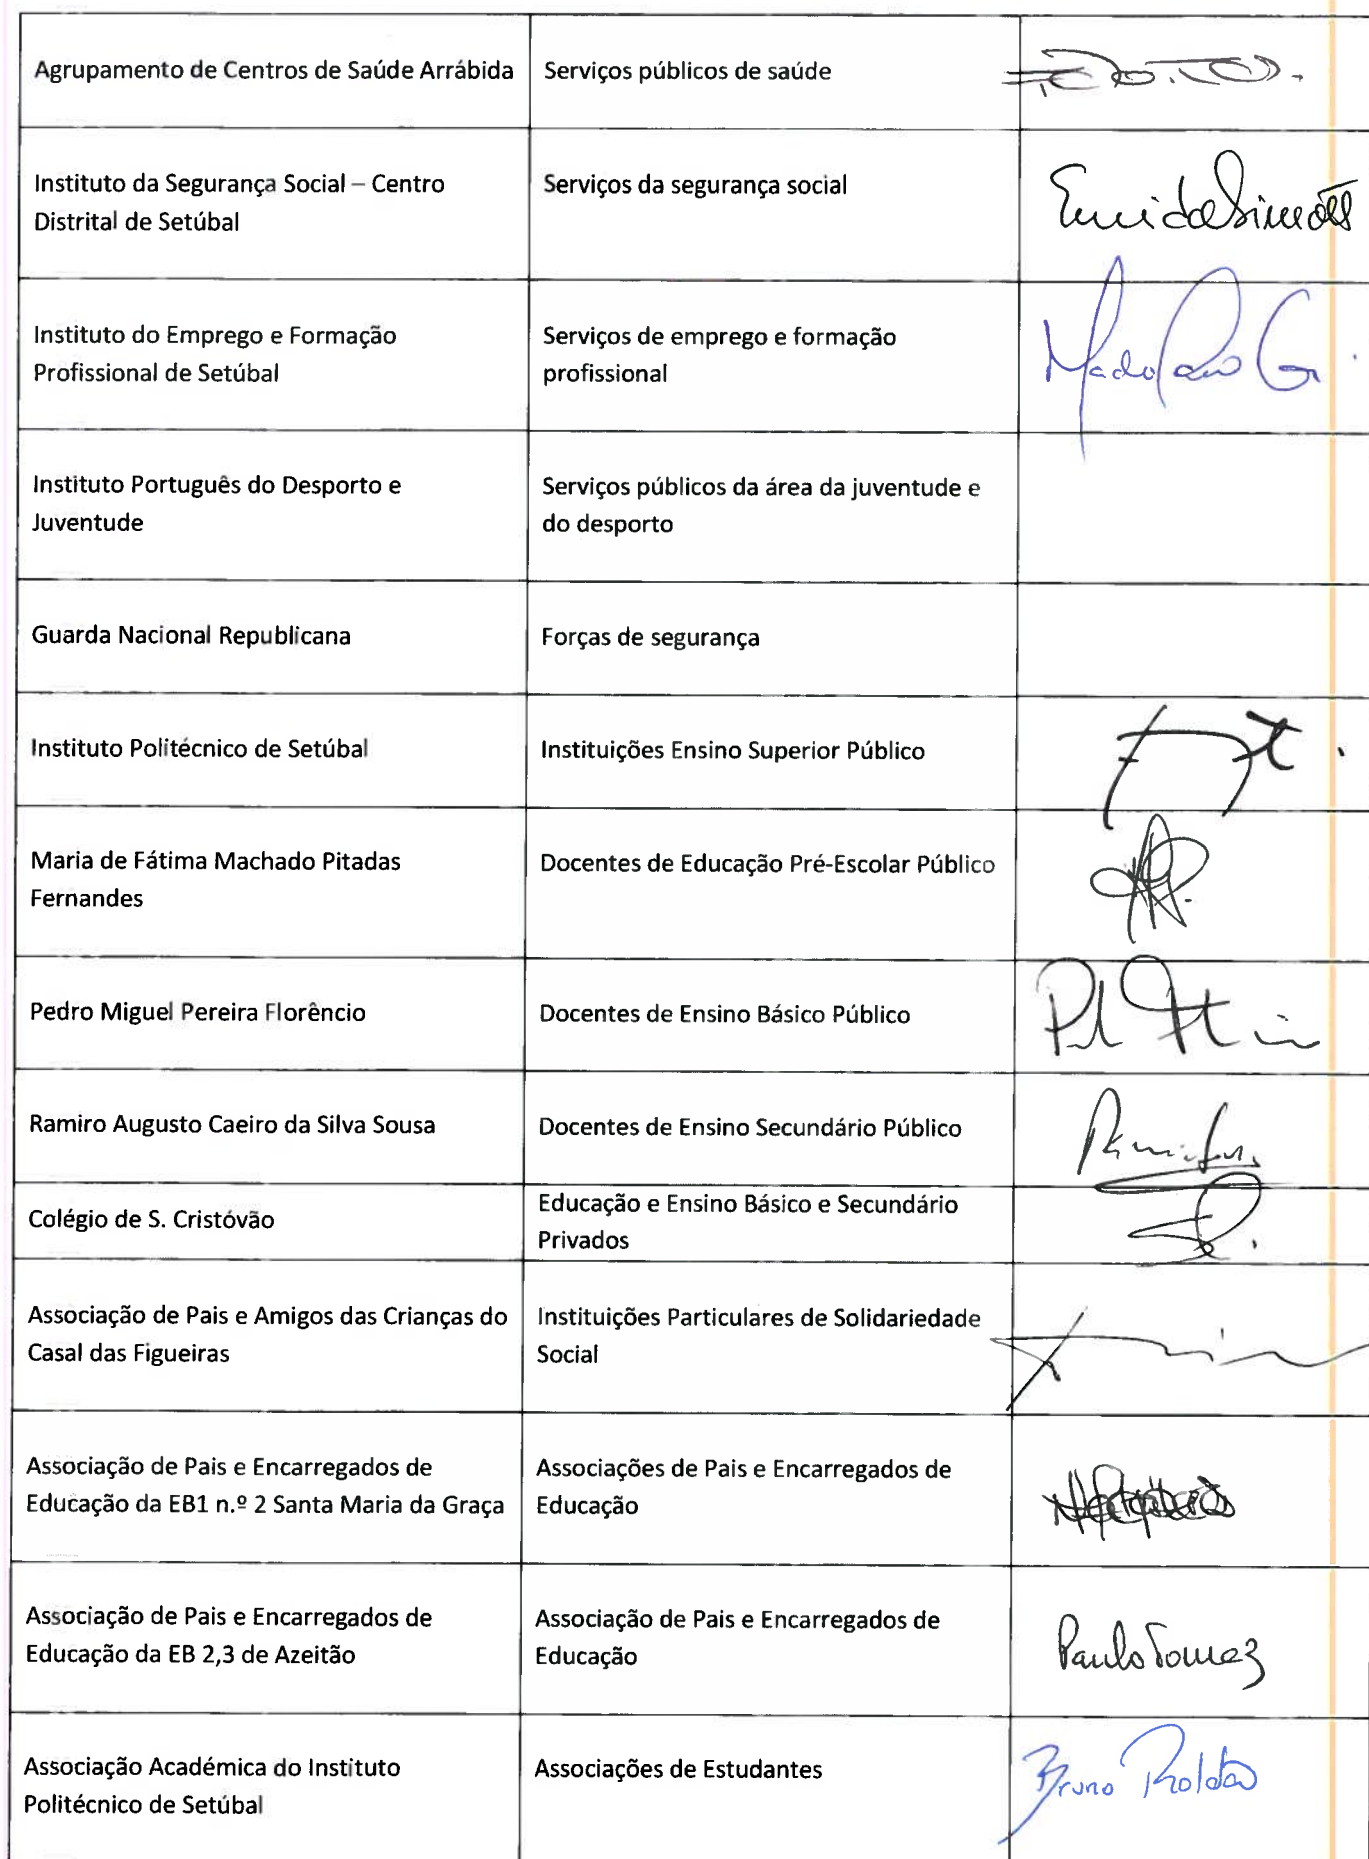 Agrupamento de Centros de Saúde Arrábida
Serviços públicos de saúde
Instituto da Segurança Social – Centro
Distrital de Setúbal
Serviços da segurança social
Instituto do Emprego e Formação
Profissional de Setúbal
Serviços de emprego e formação
profissional
Instituto Português do Desporto e
Juventude
Serviços públicos da área da juventude e
do desporto
Guarda Nacional Republicana
Forças de segurança
Instituto Politécnico de Setúbal
Instituições Ensino Superior Público
Maria de Fátima Machado Pitadas
Fernandes
Docentes de Educação Pré-Escolar Público
Pedro Miguel Pereira Florêncio
Docentes de Ensino Básico Público
Ramiro Augusto Caeiro da Silva Sousa
Docentes de Ensino Secundário Público
Colégio de S. Cristóvão
Educação e Ensino Básico e Secundário
Privados
Associação de Pais e Amigos das Crianças do
Casal das Figueiras
Instituições Particulares de Solidariedade
Social
Associação de Pais e Encarregados de
Educação da EB1 n.º 2 Santa Maria da Graça
Associações de Pais e Encarregados de
Educação
Associação de Pais e Encarregados de
Educação da EB 2,3 de Azeitão
Associação de Pais e Encarregados de
Educação
Paulo Tomez
Associação Académica do Instituto
Politécnico de Setúbal
Associações de Estudantes
Bruno Roldão